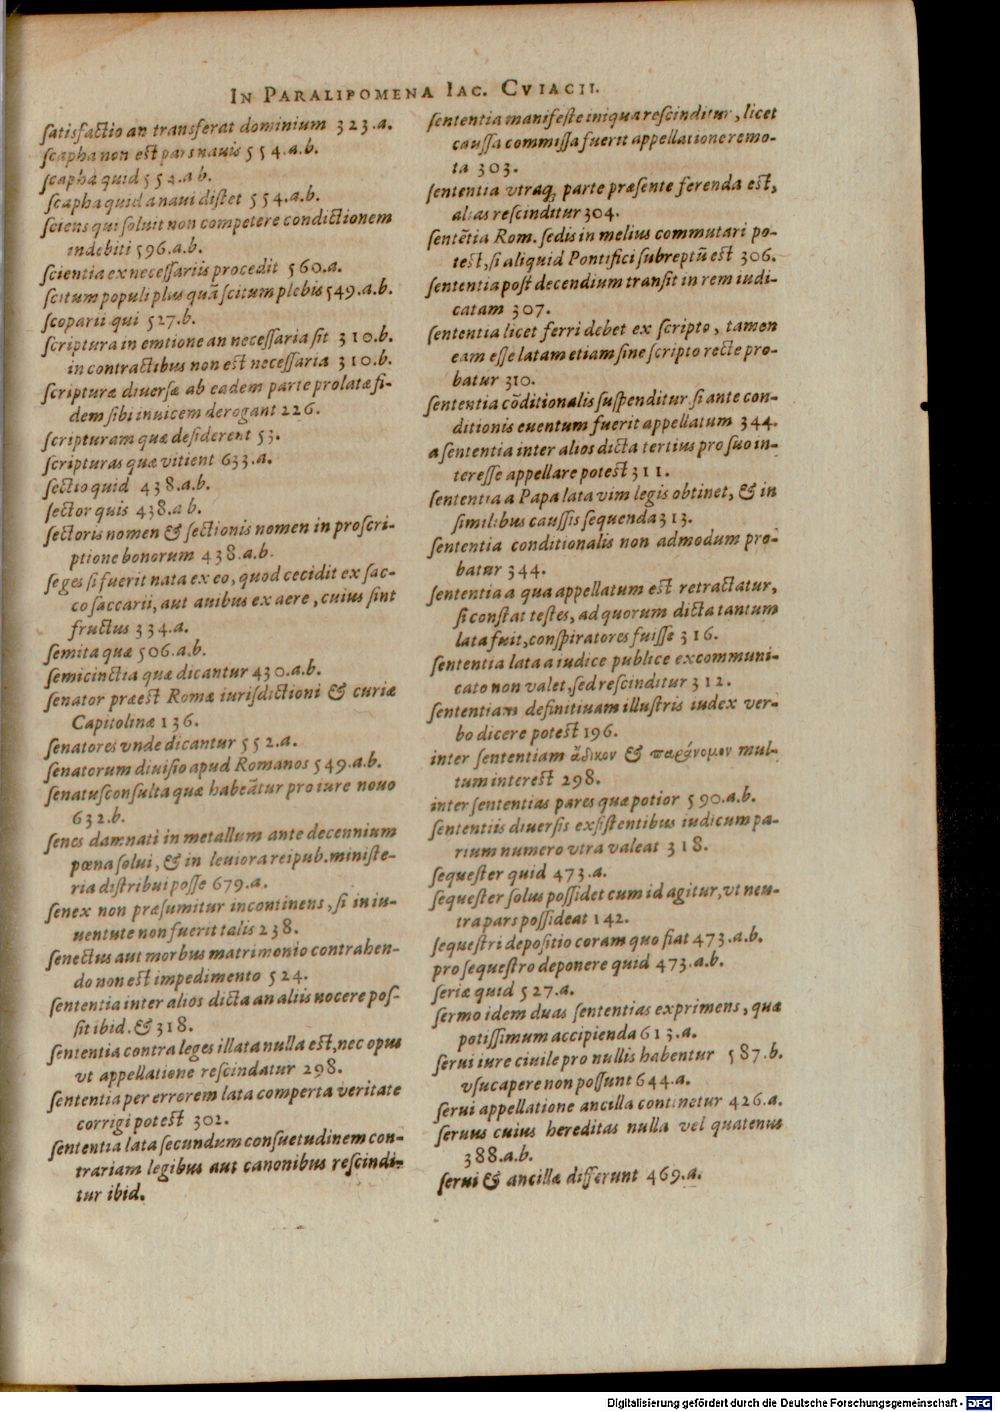 IN PARALIPOMENA IAC. CVIACII.
satisfactio an transferat dominium 323.a.
scapha non est pars nauis 554.a.b.
scapha quid 554.a.b.
scapha quid a naui distet 554.a.b.
sciens qui soluit non competere condictionem
indebiti 596.a.b.
scientia ex necessariis procedit 560.a.
scitum populi plus quã scitum plebis 549.a.b.
scoparii qui 527.b.
scriptura in emtione an necessaria sit 310.b.
in contractibus non est necessaria 310.b.
scripturæ diuersæ ab eadem parte prolatæ fi-
dem sibi inuicem derogant 226.
scripturam quæ desiderent 53.
scripturas quæ vitient 633.a.
sectio quid 438.a.b.
sector quis 438.a b.
sectoris nomen & sectionis nomen in proscri-
ptione bonorum 438.a.b.
seges si fuerit nata ex eo, quod cecidit ex sac-
co saccarii, aut auibus ex aere, cuius sint
fructus 334.a.
semita quæ 506.a.b.
semicinctia quæ dicantur 430.a.b.
senator præest Romæ iurisdictioni & curiæ
Capitolinæ 136.
senatores vnde dicantur 552.a.
senatorum diuisio apud Romanos 549.a.b.
senatusconsulta quæ habeãtur pro iure nouo
632.b.
senes damnati in metallum ante decennium
pœna solui, & in leuiora reipub. ministe-
ria distribui posse 679.a.
senex non præsumitur incontinens, si in iu-
uentute non fuerit talis 238.
senectus aut morbus matrimonio contrahen-
do non est impedimento 524.
sententia inter alios dicta an aliis nocere pos-
sit ibid. & 318.
sententia contra leges illata nulla est, nec opus
vt appellatione rescindatur 298.
sententia per errorem lata comperta veritate
corrigi potest 302.
sententia lata secundum consuetudinem con-
trariam legibus aut canonibus rescindi-
tur ibid.
sententia manifeste iniqua rescinditur, licet
caussa commissa fuerit appellatione remo-
ta 303.
sententia vtraq; parte præsente ferenda est,
alias rescinditur 304.
sentẽtia Rom. sedis in melius commutari po-
test, si aliquid Pontifici subreptũ est 306.
sententia post decendium transit in rem iudi-
catam 307.
sententia licet ferri debet ex scripto, tamen
eam esse latam etiam sine scripto recte pro-
batur 310.
sententia cõditionalis suspenditur si ante con-
ditionis euentum fuerit appellatum 344.
a sententia inter alios dicta tertius pro suo in-
teresse appellare potest 311.
sententia a Papa lata vim legis obtinet, & in
similibus caussis sequenda 313.
sententia conditionalis non admodum pro-
batur 344.
sententia a qua appellatum est retractatur,
si constat testes, ad quorum dicta tantum
lata fuit, conspiratores fuisse 316.
sententia lata a iudice publice excommuni-
cato non valet, sed rescinditur 312.
sententiam definitiuam illustris iudex ver-
bo dicere potest 196.
inter sententiam ἄδικον & παράνομον mul-
tum interest 298.
inter sententias pares quæ potior 590.a.b.
sententiis diuersis exsistentibus iudicum pa-
rium numero vtra valeat 318.
sequester quid 473.a.
sequester solus possidet cum id agitur, vt neu-
tra pars possideat 142.
sequestri depositio coram quo fiat 473.a.b.
pro sequestro deponere quid 473.a.b.
seriæ quid 527.a.
sermo idem duas sententias exprimens, quæ
potissimum accipienda 613.a.
serui iure ciuile pro nullis habentur 587.b.
vsucapere non possunt 644.a.
serui appellatione ancilla continetur 426.a.
seruus cuius hereditas nulla vel quatenus
388.a.b.
serui & ancillæ differunt 469.a.
Digitalisierung gefördert durch die Deutsche Forschungsgemeinschaft - DFG